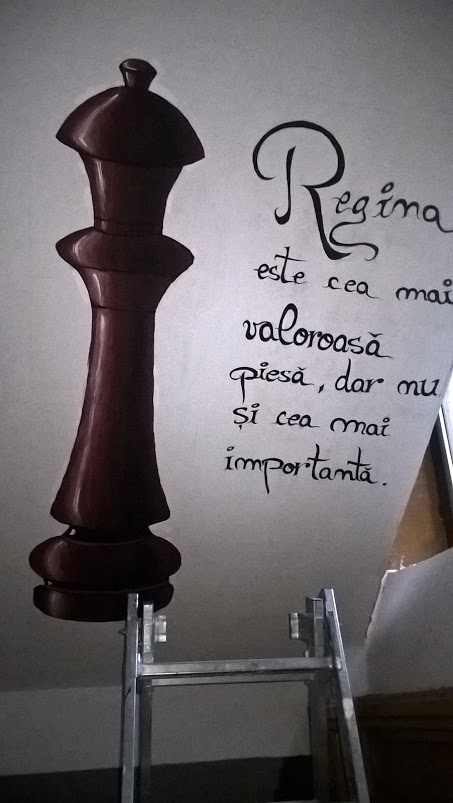 Regina
este cea mai
valoroasă
piesă, dar nu
și cea mai
importantă.